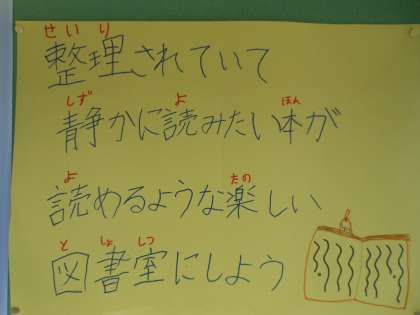 せいり
整理されていて
しず よ ほん
静かに読みたい本が
よ たの
読めるような楽しい
と しょ しつ
図書室にしよう